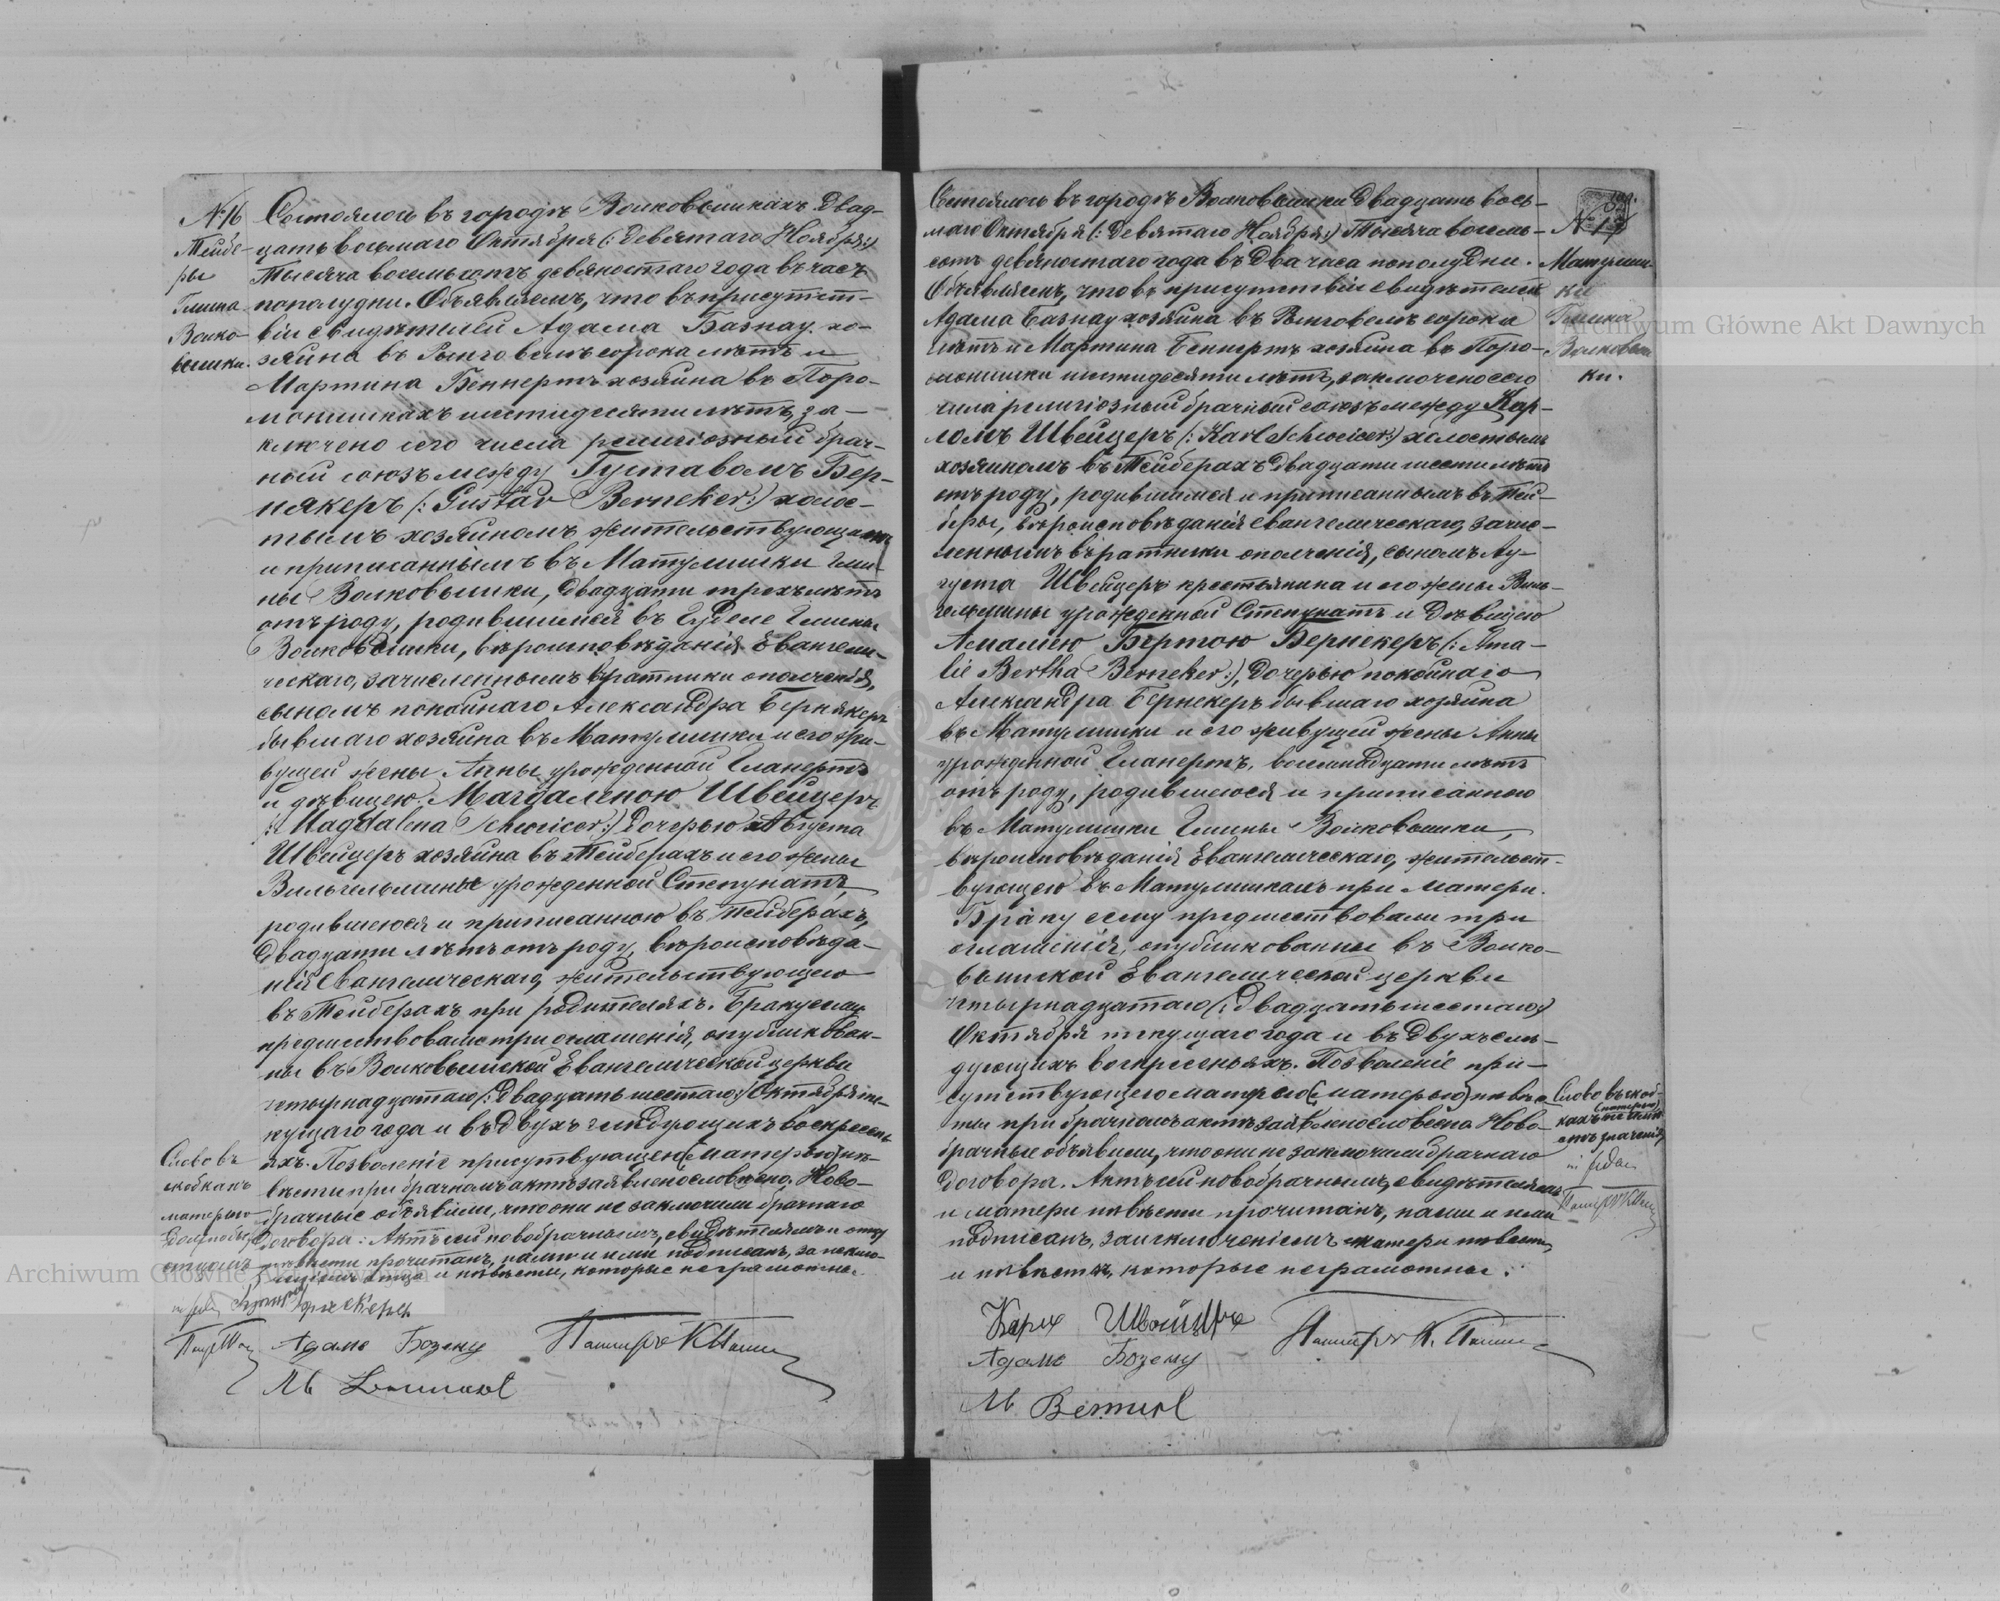 № 16
Тейбе-
ры
Гмина
Волко-
вышки.
Состоялось въ городѣ Волковышкахъ двад-
цать восьмаго Октября (: девятаго Ноября:)
тысяча восемьсотъ девяностаго года въ часъ
пополудни. Объявляемъ, что въ присутст-
віи свидѣтелей Адама Базнау хо-
зяина въ Рынговелъ сорока лѣтъ и
Мартина Беннертъ хозяина въ Поро-
монишкахъ шестидесяти лѣтъ, за-
ключено сего числа религіозный брач-
ный союзъ между Густавомъ Бер-
някеръ (: Gustav Berneker:) холос-
тымъ хозяиномъ жительствующимъ
и приписаннымъ въ Матулишки гми-
ны Волковышки, двадцати трехъ лѣтъ
отъ роду, родившимся въ Гуделе гмины
Волковышки, вѣроисповѣданія Евангели-
ческаго, зачисленнымъ въ ратники ополченія,
сыномъ покойнаго Александра Бернякеръ
бывшаго хозяина въ Матулишки и его жи-
вущей жены Анны урожденной Гланертъ
и дѣвицею Магдаленою Швейцеръ
(: Magdalena Schweicer:) дочерью Августа
Швейцеръ хозяина въ Тейберахъ и его жены
Вильгельмины урожденной Степунатъ,
родившеюся и приписанною въ Тейберахъ,
двадцати лѣтъ отъ роду, вѣроисповѣда-
нія Евангелическаго, жительствующею
въ Тейберахъ при родителяхъ. Браку сему
предшествовали три оглашенія, опубликован-
ны въ Волковышской Евангелической церкви
четырнадцатаго (: двадцать шестаго:) Октября те-
кущаго года и въ двухъ слѣдующихъ воскресень-
яхъ. Позволеніе присутвующею (матерью) не-
вѣсты при брачномъ актѣ заявлено словесно. Ново-
брачные объявили, что они не заключили брачнаго
договора. Актъ сей новобрачнымъ, свидѣтелямъ и отцу
невѣсты прочитанъ, нами и ими подписанъ, за исклю-
ченіемъ отца и невѣсты, которые неграмотны.
Слово въ
скобкахъ
матерью
должно быть
отцомъ
in fidem
Адамъ Бозену
М Bennert
Пасторъ К Пашъ
Состоялось въ городѣ Волковышки двадцать вось-
маго Октября (: девятаго Ноября:) тысяча восемь-
сотъ девяностаго года въ два часа пополудни.
Объявляемъ, что въ присутствіи свидѣтелей
Адама Базнау хозяина въ Рынговелъ сорока
лѣтъ и Мартина Беннертъ хозяина въ Поро-
монишки шестидесяти лѣтъ, заключено сего
числа религіозный брачный союзъ между Кар-
ломъ Швейцеръ (: Karl Schweicer:) холостымъ
хозяиномъ въ Тейберахъ двадцати шести лѣтъ
отъ роду, родившимся и приписаннымъ въ Тей-
беры, вѣроисповѣданія Евангелическаго, зачис-
леннымъ въ ратники ополченія, сыномъ Ав-
густа Швейцеръ крестьянина и его жены Виль-
гельмины урожденной Степунатъ и дѣвицею
Амаліею Бертою Бернекеръ (: Ama-
lie Bertha Berneker:), дочерью покойнаго
Александра Бернекеръ бывшаго хозяина
въ Матулишки и его живущей жены Анны
урожденной Гланертъ, восемнадцати лѣтъ
отъ роду, родившеюся и приписанною
въ Матулишки гмины Волковышки,
вѣроисповѣданія Евангелическаго, жительст-
вующею въ Матулишкахъ при матери.
Браку сему предшествовали три
оглашенія, опубликованны въ Волко-
вышской Евангелической церкви
четырнадцатаго (: двадцать шестаго:)
Октября текущаго года и въ двухъ слѣ-
дующихъ воскресеньяхъ. Позволеніе при-
сутствующею матерью (матерью) невѣс-
ты при брачномъ актѣ заявлено словесно. Ново-
брачные объявили, что они не заключили брачнаго
договора. Актъ сей новобрачнымъ, свидѣтелямъ
и матери невѣсты прочитанъ, нами и ими
подписанъ, за исключеніемъ матери невѣсты,
и невѣсты, которые неграмотны.
Карлъ Швейцръ
Адамъ Бозену
М Bennert
Пасторъ К. Пашъ
№ 17
Матулиш-
ки
Гмина
Волковыш-
ки.
Слово въ скоб-
кахъ (матерью) не имѣ-
етъ значенія
in fidem
Archiwum Główne Akt Dawnych
Archiwum Główne Akt Dawnych